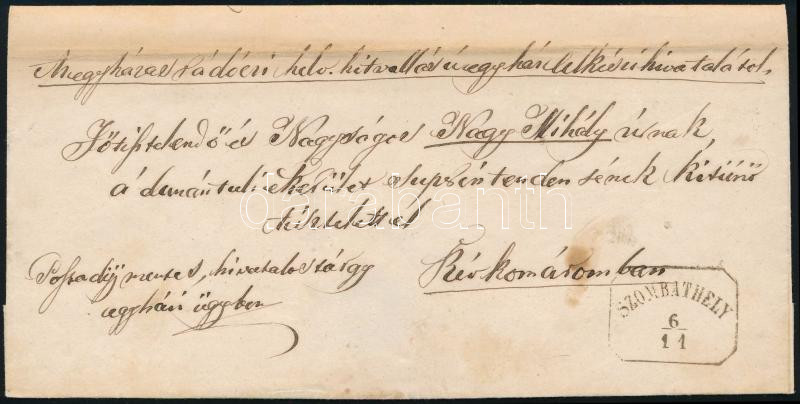 Megyházas rádóczi helv. hitvallású egyház lelkészi hivatalától.
Főtisztelendő és Nagyságos Nagy Mihály úrnak,
a dunántúli e. kerület superintendensének kitünő
tisztelettel
Rév komáromban
Postadíj mentes, hivatalos tárgy
egyházi ügyben
SZOMBATHELY
6
11
darabanth